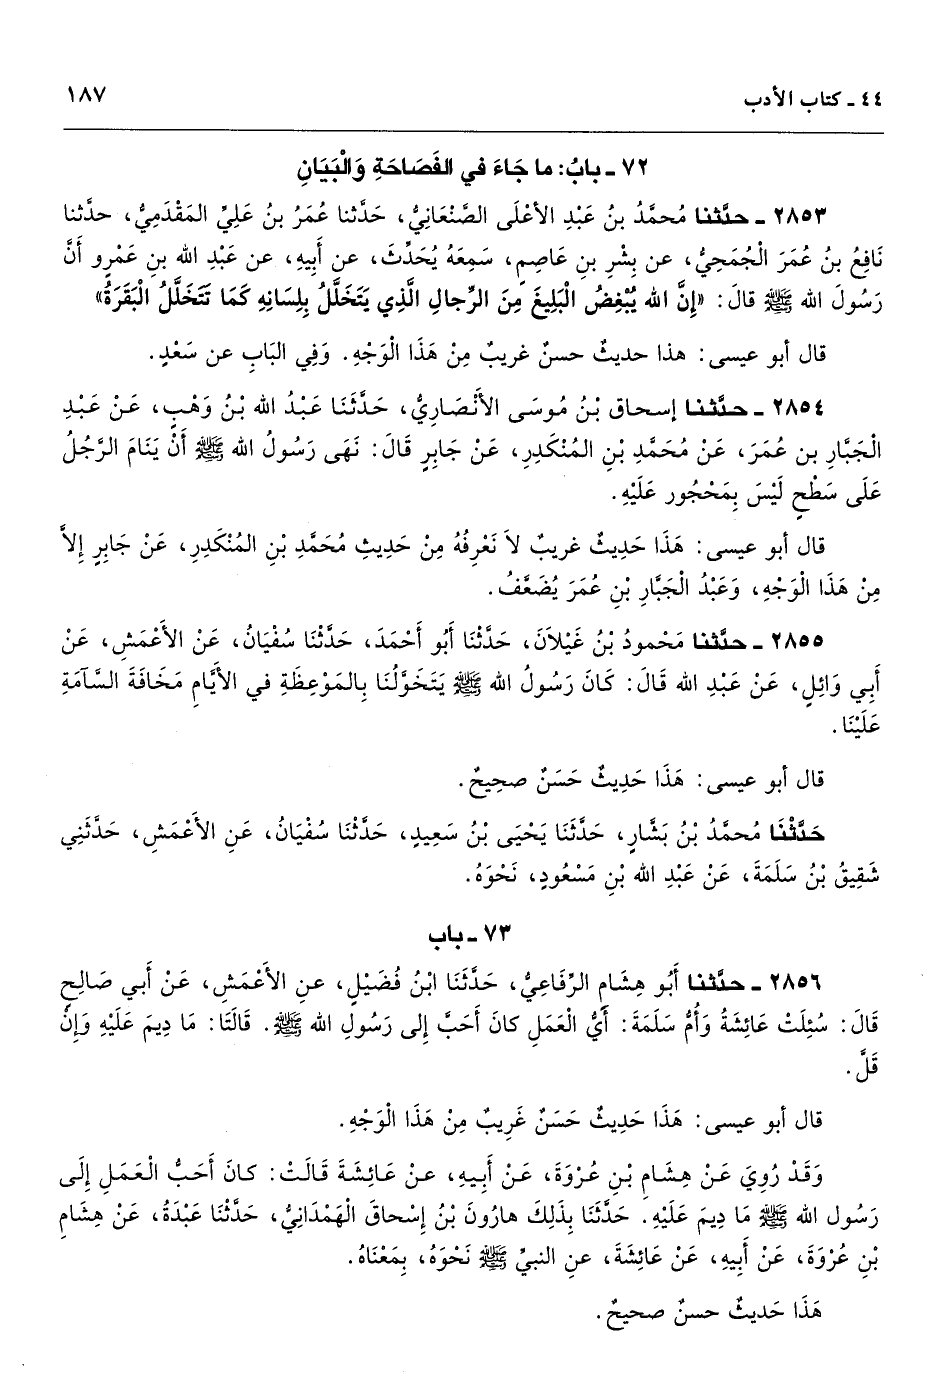 ٤٤ ـ كتاب الأدب ١٨٧
٧٢ ـ بابُ: ما جَاءَ في الفَصَاحَةِ وَالْبَيَانِ
٢٨٥٣ ـ حدَّثنا مُحمَّدُ بنُ عَبْدِ الأعْلَى الصَّنْعَانِيُّ، حَدَّثنا عُمَرُ بنُ عَلِيٍّ المَقْدَمِيُّ، حدَّثنا
نَافِعُ بنُ عُمَرَ الْجُمَحِيُّ، عن بِشْرِ بنِ عَاصِمٍ، سَمِعَهُ يُحَدِّثُ، عن أبِيهِ، عن عَبْدِ الله بنِ عَمْرٍو أنَّ
رَسُولَ الله ﷺ قالَ: «إنَّ الله يُبْغِضُ الْبَلِيغَ مِنَ الرِّجالِ الَّذِي يَتَخَلَّلُ بِلِسَانِهِ كَمَا تَتَخَلَّلُ الْبَقَرَةُ»
قال أبو عيسى: هذا حديثٌ حسنٌ غريبٌ مِنْ هَذَا الْوَجْهِ. وَفِي البَابِ عن سَعْدٍ.
٢٨٥٤ ـ حدَّثنا إسحاق بْنُ مُوسَى الأَنْصَارِيُّ، حَدَّثَنَا عَبْدُ الله بْنُ وَهْبٍ، عَنْ عَبْدِ
الْجَبَّارِ بن عُمَرَ، عَنْ مُحَمَّدِ بْنِ المُنْكَدِرِ، عَنْ جَابِرٍ قَالَ: نَهَى رَسُولُ الله ﷺ أَنْ يَنَامَ الرَّجُلُ
عَلَى سَطْحٍ لَيْسَ بِمَحْجُورٍ عَلَيْهِ.
قال أبو عيسى: هَذَا حَدِيثٌ غريبٌ لاَ نَعْرِفُهُ مِنْ حَدِيثِ مُحَمَّدِ بْنِ المُنْكَدِرِ، عَنْ جَابِرٍ إلاَّ
مِنْ هَذَا الْوَجْهِ، وَعَبْدُ الْجَبَّارِ بْنِ عُمَرَ يُضَعَّفُ.
٢٨٥٥ ـ حدَّثنا مَحْمودُ بْنُ غَيْلاَنَ، حَدَّثْنَا أَبُو أحْمَدَ، حَدَّثْنَا سُفْيَانُ، عَنْ الأَعْمَشِ، عَنْ
أَبِي وَائِلٍ، عَنْ عَبْدِ الله قَالَ: كَانَ رَسُولُ الله ﷺ يَتَخَوَّلُنَا بِالمَوْعِظَةِ في الأيَّامِ مَخَافَةَ السَّآمَةِ
عَلَيْنَا.
قال أبو عيسى: هَذَا حَدِيثٌ حَسَنٌ صحِيحٌ.
حَدَّثْنَا مُحمَّدُ بْنُ بَشَّارٍ، حَدَّثَنَا يَحْيَى بْنُ سَعِيدٍ، حَدَّثْنَا سُفْيَانُ، عَنِ الأَعْمَشِ، حَدَّثَنِي
شَقِيقُ بْنُ سَلَمَةَ، عَنْ عَبْدِ الله بْنِ مَسْعُودٍ، نَحْوَهُ.
٧٣ ـ باب
٢٨٥٦ ـ حدَّثنا أَبُو هِشَامٍ الرِّفَاعِيُّ، حَدَّثَنَا ابْنُ فُضَيْلٍ، عنِ الأَعْمَشِ، عَنْ أَبي صَالِحٍ
قَالَ: سُئِلَتْ عَائِشَةُ وَأُمُّ سَلَمَةَ: أَيُّ الْعَمَلِ كانَ أحَبَّ إلى رَسُولِ الله ﷺ. قَالَتَا: مَا دِيمَ عَلَيْهِ وَإنْ
قَلَّ.
قال أبو عيسى: هَذَا حَدِيثٌ حَسَنٌ غَرِيبٌ مِنْ هَذَا الْوَجْهِ.
وَقَدْ رُوِيَ عَنْ هِشَامِ بْنِ عُرْوَةَ، عَنْ أَبِيهِ، عنْ عَائِشَةَ قَالَتْ: كانَ أَحَبُّ الْعَمَلِ إلَى
رَسُول الله ﷺ مَا دِيمَ عَلَيْهِ. حَدَّثَنَا بِذَلِكَ هارُونَ بْنُ إسْحاقَ الْهَمْدَانِيُّ، حَدَّثْنَا عَبْدَةُ، عَنْ هِشَامِ
بْنِ عُرْوَةَ، عَنْ أَبِيهِ، عَنْ عَائِشَةَ، عنِ النبيِّ ﷺ نَحْوَهُ، بِمَعْنَاهُ.
هَذَا حَديثٌ حسنٌ صحيحٌ.